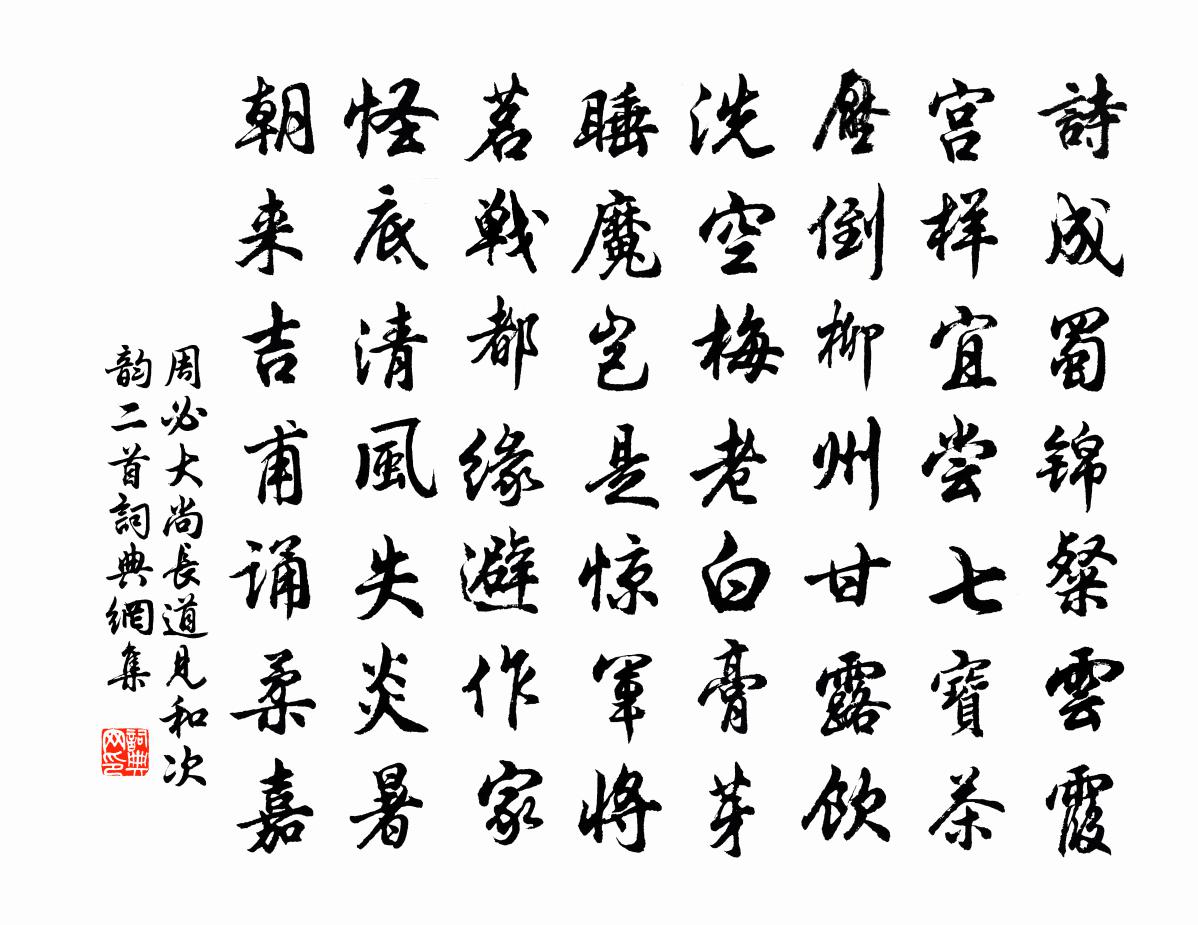 詩成蜀锦粲雲霞
宫样宜尝七寶茶
壓倒柳州甘露飲
洗空梅老白膏芽
睡魔岂是惊軍將
茗戰都缘避作家
怪底清風失炎暑
朝来吉甫诵柔嘉
周必大尚長道見和次
韵二首詞典網集
詞典
网印